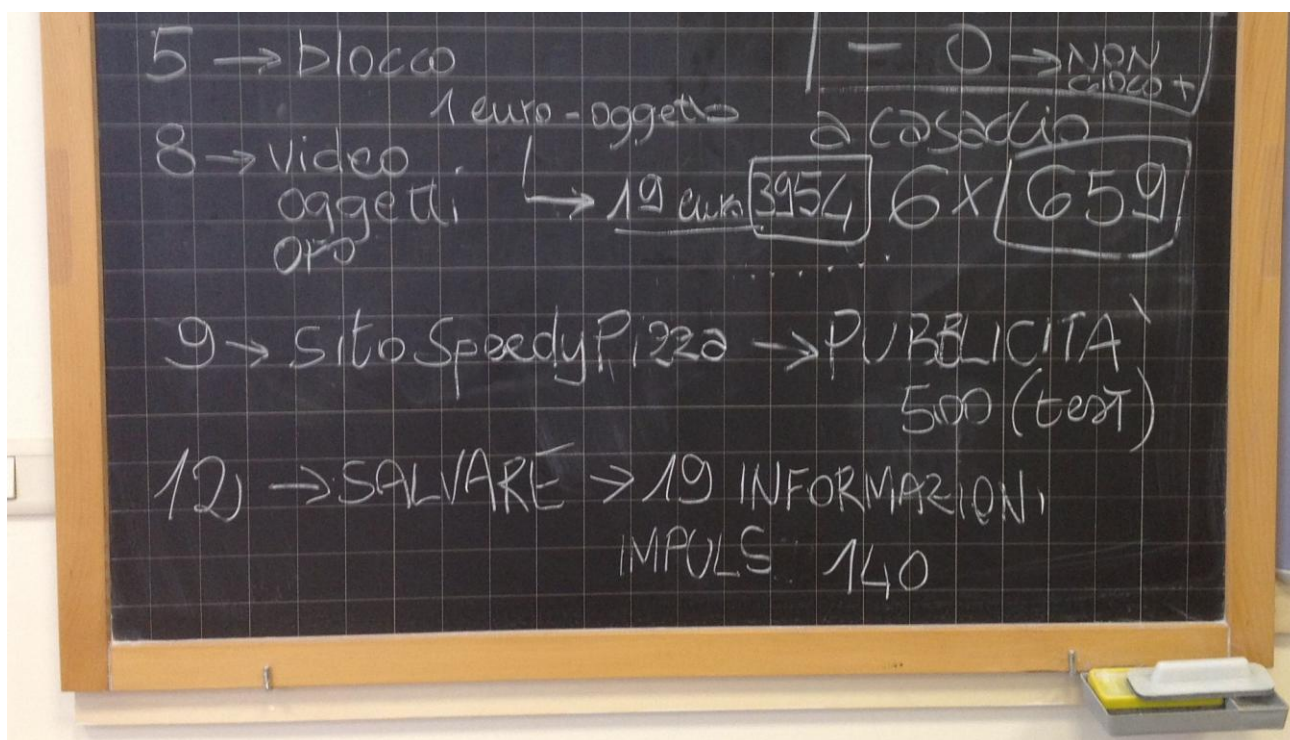 5 → blocco
- 0 → NON
GIOCO +
1 euro - oggetto
a casaccio
8 → video
oggetti
oro
→ 19 euro 3954 6 x 659
9 → sito SpeedyPizza → PUBBLICITÀ
500 (test)
12) → SALVARE → 19 INFORMAZIONI
IMPULS 140